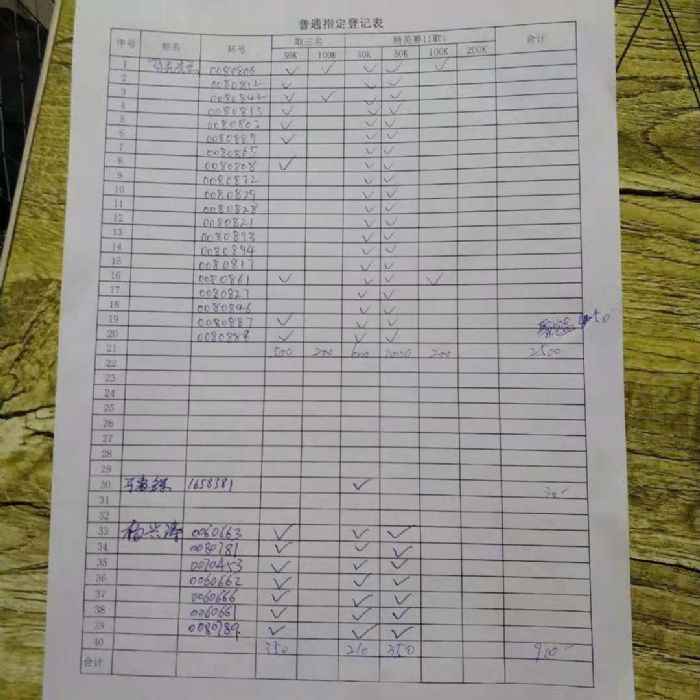 普通指定登记表
序号 姓名 环号 取三名 精英赛11取1 合计
50K 100K 30K 50K 100K 200K
1 0080806 ✓ ✓ ✓ ✓ ✓
2 0080812 ✓ ✓ ✓
3 0080842 ✓ ✓ ✓ ✓
4 0080813 ✓ ✓ ✓
5 0080802 ✓ ✓ ✓
6 0080889 ✓ ✓ ✓
7 0080865 ✓ ✓
8 0080808 ✓ ✓ ✓
9 0080872 ✓ ✓
10 0080829 ✓ ✓
11 0080828 ✓ ✓
12 0080821 ✓ ✓
13 0080893 ✓ ✓
14 0080894 ✓ ✓
15 0080817 ✓ ✓
16 0080861 ✓ ✓ ✓ ✓
17 0080827 ✓ ✓
18 0080846 ✓ ✓
19 0080887 ✓ ✓ ✓
20 0080888 ✓ ✓ ✓
21 500 200 600 1000 200 2500
22
23
24
25
26
27
28
29
30 1658381 ✓ 30
31
32
33 杨兴海 0060663 ✓ ✓ ✓
34 0080781 ✓ ✓ ✓
35 0070453 ✓ ✓ ✓
36 0060662 ✓ ✓ ✓
37 0060666 ✓ ✓ ✓
38 0060661 ✓ ✓ ✓
39 0080789 ✓ ✓ ✓
40 350 210 350 910
合计